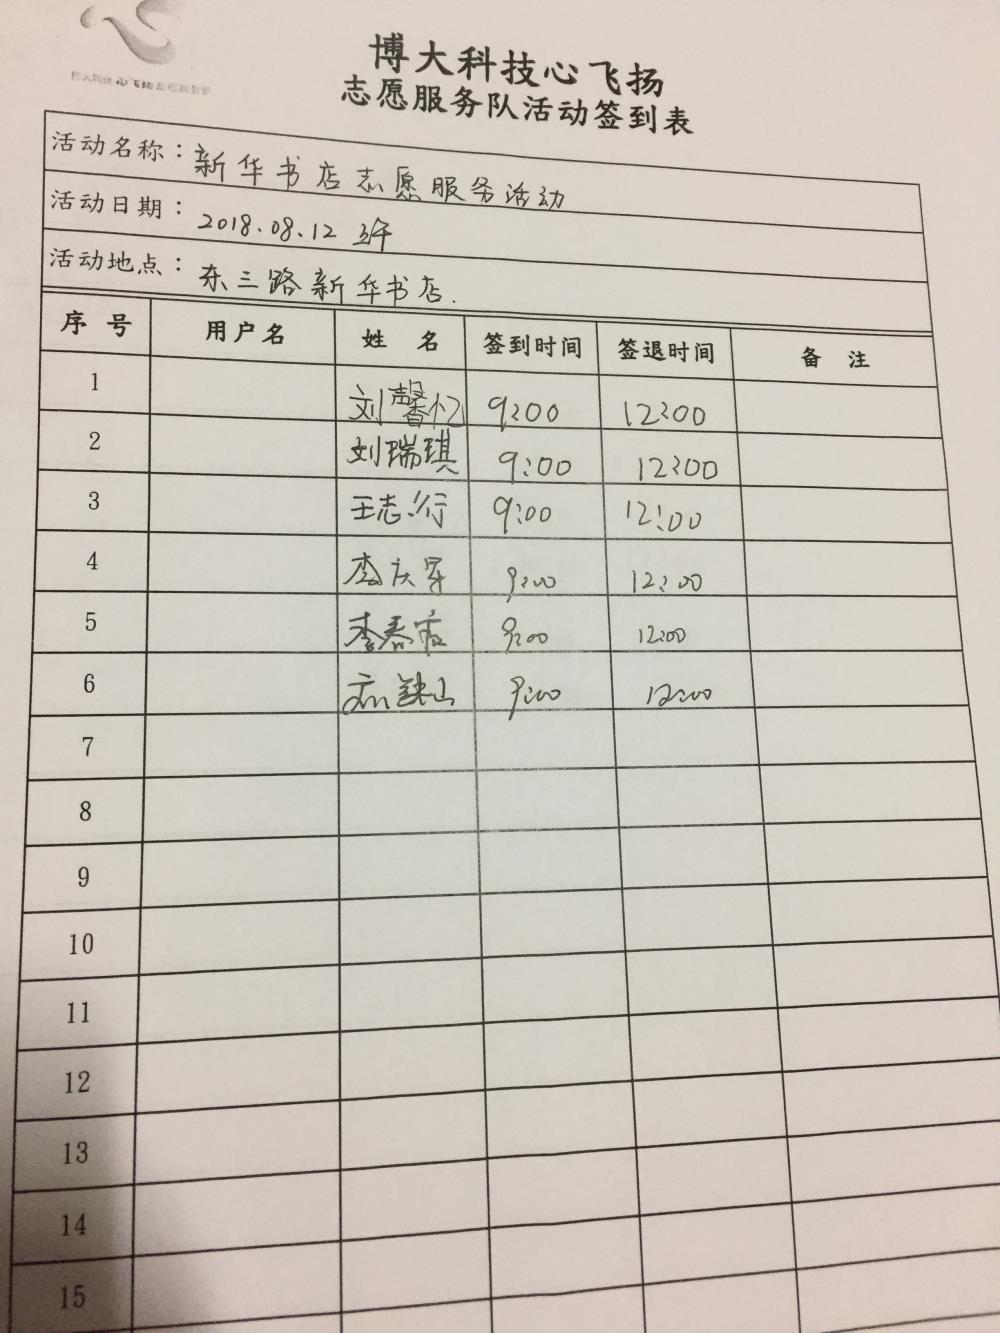 博大科技心飞扬
志愿服务队活动签到表
活动名称：新华书店志愿服务活动
活动日期：2018.08.12 上午
活动地点：东三路新华书店.
序号 用户名 姓名 签到时间 签退时间 备注
1 刘馨忆 9:00 12:00
2 刘瑞琪 9:00 12:00
3 王志行 9:00 12:00
4 李庆军 9:00 12:00
5 李春霞 9:00 12:00
6 9:00 12:00
7
8
9
10
11
12
13
14
15